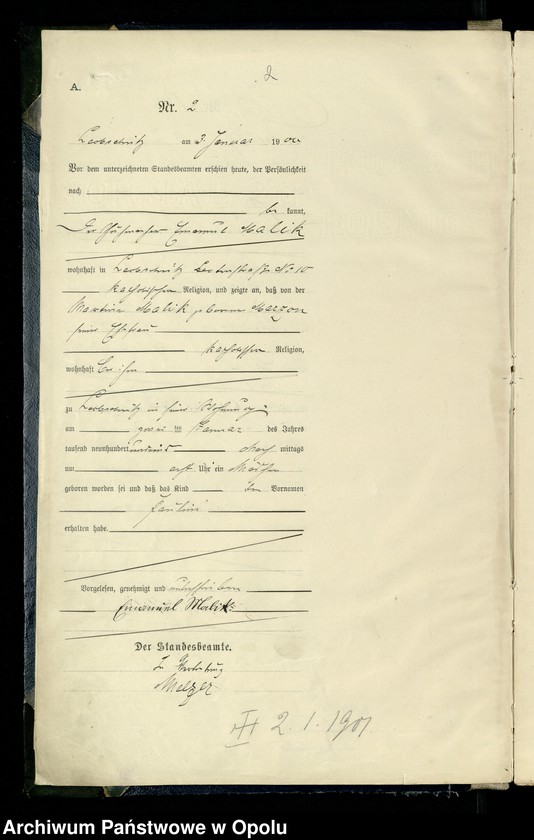 2
A.
Nr. 2
Leobschütz am 3. Januar 1901
Vor dem unterzeichneten Standesbeamten erschien heute, der Persönlichkeit
nach
be kannt,
Der Emanuel Malik
wohnhaft in Leobschütz No 10
katholischer Religion, und zeigte an, daß von der
Malik geborene Marzon
seiner Ehefrau
katholischer Religion,
wohnhaft bei ihm
zu Leobschütz in seiner Wohnung
am zwei ten Januar des Jahres
tausend neunhundert und eins Nach mittags
um acht Uhr ein Mädchen
geboren worden sei und daß das Kind den Vornamen
Pauline
erhalten habe.
Vorgelesen, genehmigt und unterschrieben
Emanuel Malik
Der Standesbeamte.
In Vertretung
Melzer
2. 1. 1901
Archiwum Państwowe w Opolu